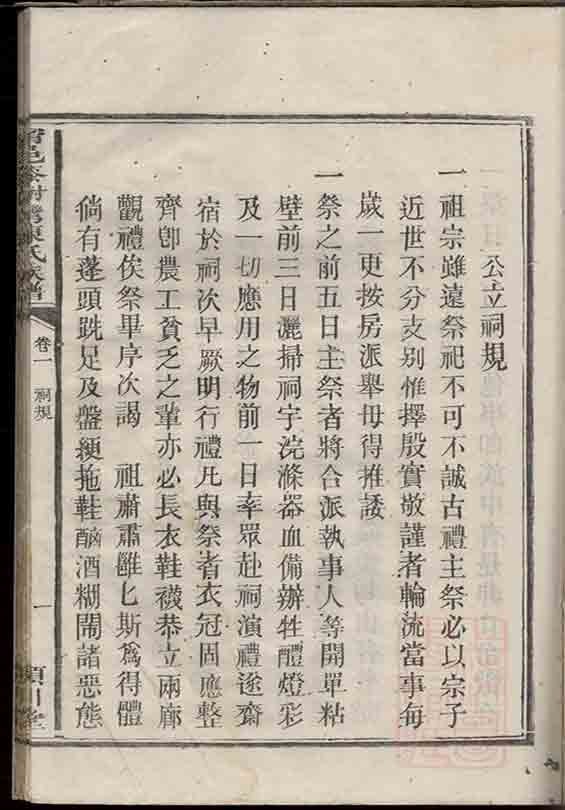 公立祠規
一祖宗雖遠祭祀不可不誠古禮主祭必以宗子
近世不分支別惟擇殷實敬謹者輪流當事每
歲一更按房派舉毋得推諉
一祭之前五日主祭者將合派執事人等開單粘
壁前三日灑掃祠宇浣滌器血備辦牲醴燈彩
及一切應用之物前一日率眾赴祠演禮遂齋
宿於祠次早厥明行禮凡與祭者衣冠固應整
齊卽農工貧乏之輩亦必長衣鞋襪恭立兩廊
觀禮俟祭畢序次謁 祖肅肅雝匕斯爲得體
倘有蓬頭跣足及盤綆拖鞋酗酒糊鬧諸惡態
陳氏族譜
卷一 祠規
一
川堂